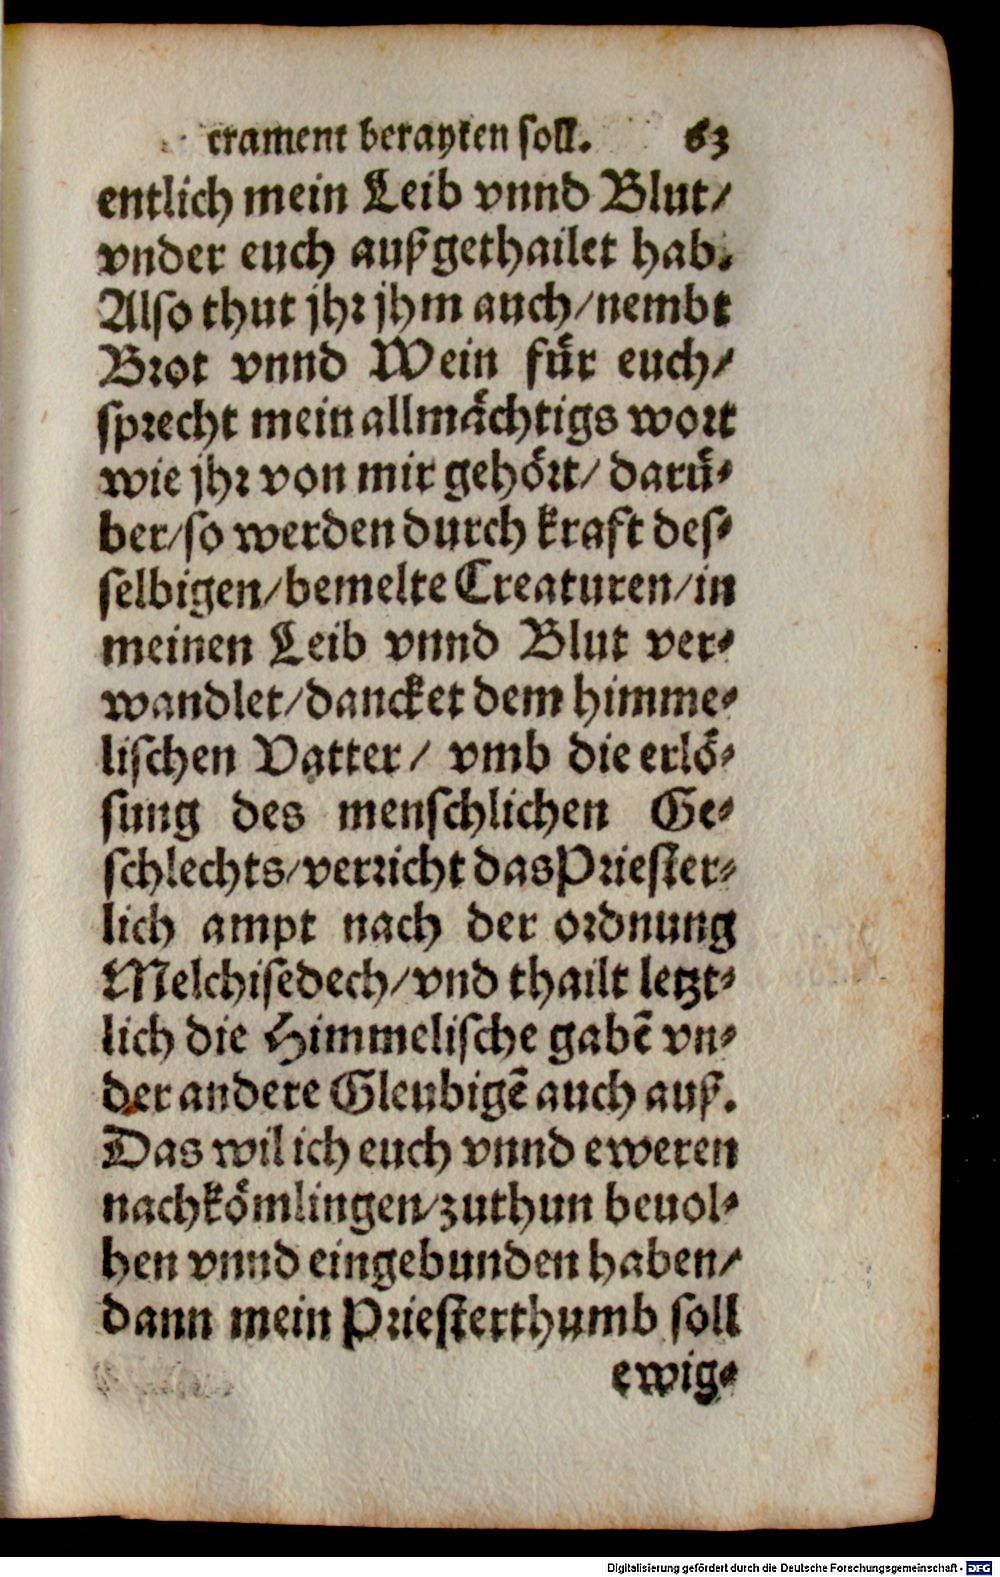 crament berayten soll. 63
entlich mein Leib vnnd Blut/
vnder euch außgethailet hab.
Also thut jhr jhm auch/nembt
Brot vnnd Wein fuͤr euch/
sprecht mein allmaͤchtigs wort
wie jhr von mir gehoͤrt/ daruͤ⸗
ber/so werden durch kraft des⸗
selbigen/bemelte Creaturen/in
meinen Leib vnnd Blut ver⸗
wandlet/dancket dem himme⸗
lischen Vatter/ vmb die erloͤ⸗
sung des menschlichen Ge⸗
schlechts/verricht das Priester⸗
lich ampt nach der ordnung
Melchisedech/vnd thailt letzt⸗
lich die Himmelische gabẽ vn⸗
der andere Gleubigẽ auch auß.
Das wil ich euch vnnd eweren
nachkoͤmlingen/zuthun beuol⸗
hen vnnd eingebunden haben/
dann mein Priesterthumb soll
ewig⸗
Digitalisierung gefördert durch die Deutsche Forschungsgemeinschaft - DFG